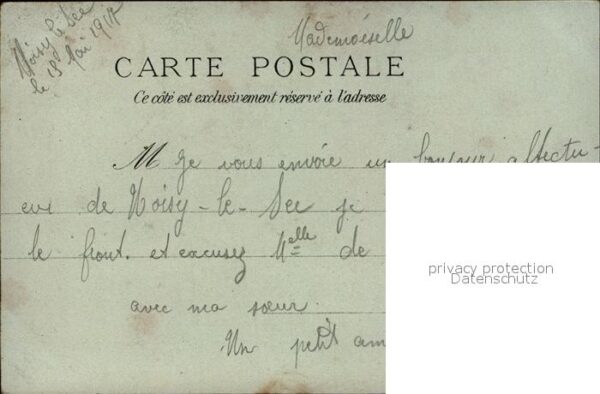 Noisy le Sec
le 15 Mai 1917
Mademoiselle
CARTE POSTALE
Ce côté est exclusivement réservé à l'adresse
M Je vous envoie un bonjour affectu-
eux de Noisy-le-Sec je
le front. et excusez Melle de
avec ma sœur.
Un petit am
privacy protection
Datenschutz